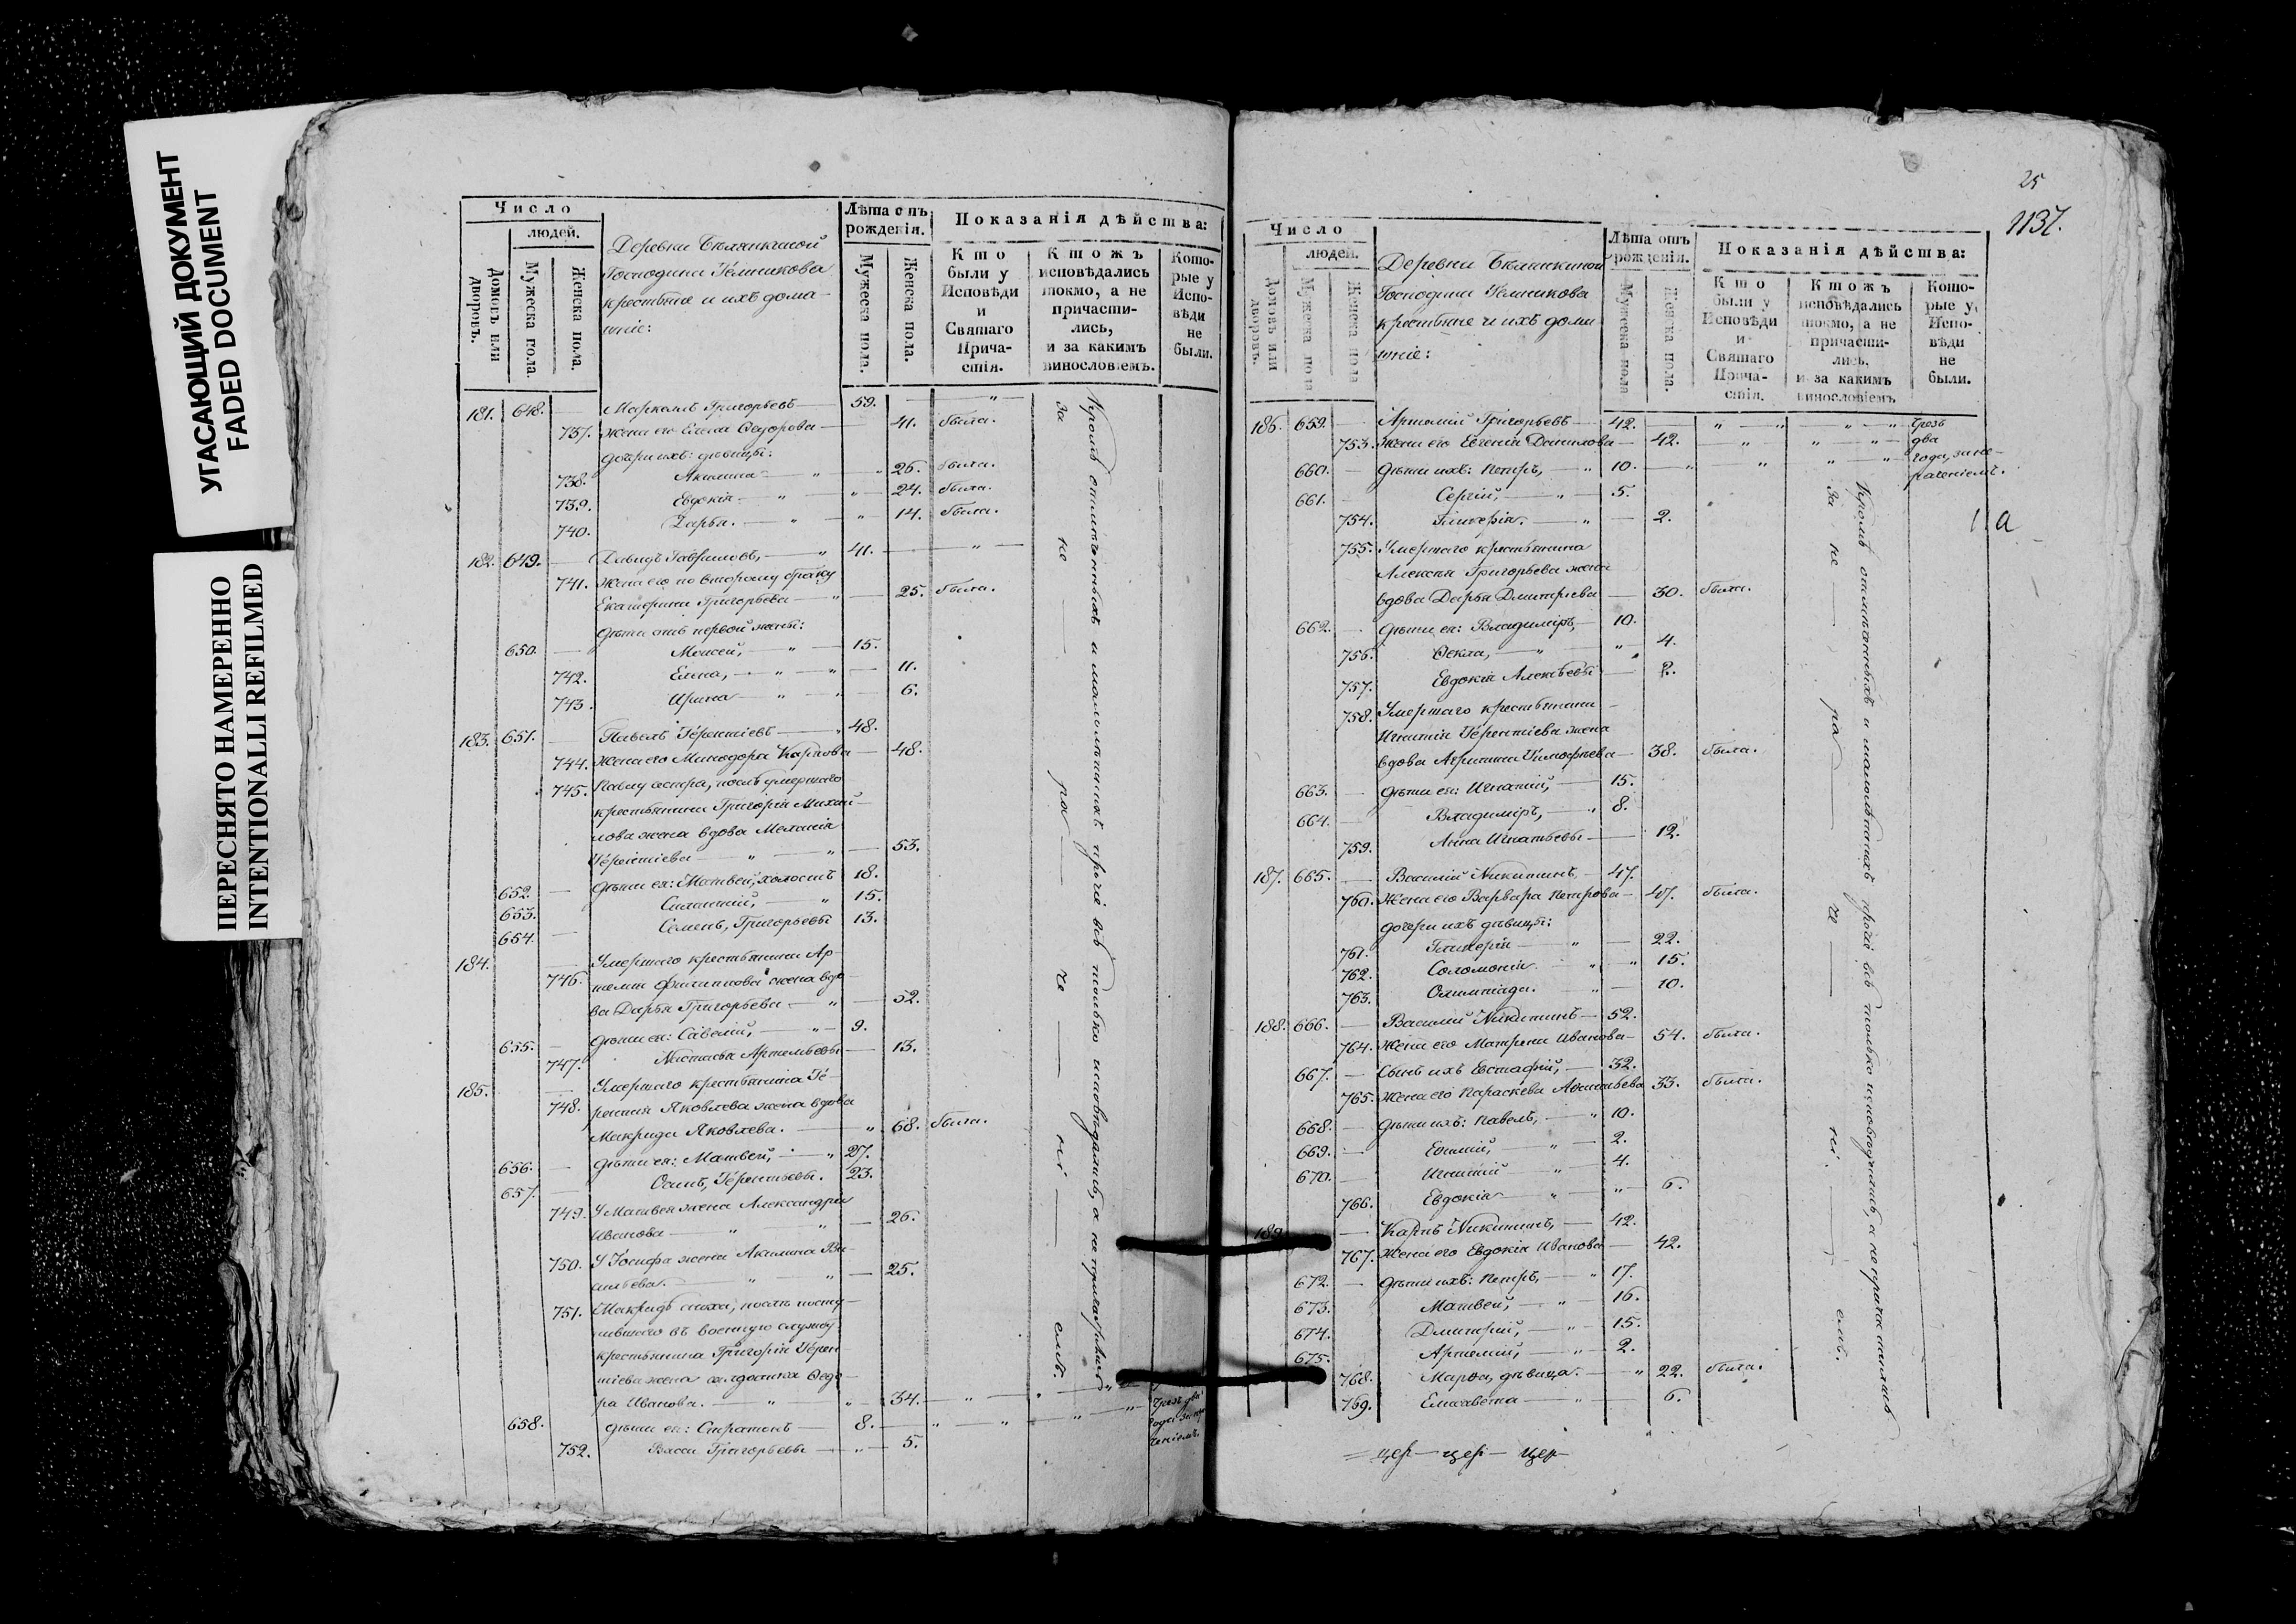 УГАСАЮЩИЙ ДОКУМЕНТ
FADED DOCUMENT
ПЕРЕСНЯТО НАМЕРЕННО
INTENTIONALLI REFILMED
Число
людей.
Домовъ или дворовъ.
Мужеска пола.
Женска пола.
Деревни
Господина
крестьяне и ихъ дома-
шніе:
Лѣта отъ рожденія.
Мужеска пола.
Женска пола.
Показанія дѣйства:
Кто были у Исповѣди и Святаго Прича-стія.
Ктожъ исповѣдались токмо, а не причасти-лись, и за какимъ винословіемъ.
Кото-рые у Испо-вѣди не были.
181. 648. — Григорьевъ — 59. — „ —
737. жена его Елена Ѳедорова — 41. была.
дочери ихъ: дѣвицы:
738. Акилина — „ — „ 26. была.
739. Евдокія — „ „ — 24. была.
740. Дарья. — „ — „ — 14. была.
182. 649. — Давидъ Гавриловъ, — „ 41. — „ —
741. жена его по второму браку
Екатерина Григорьева — „ — 25. была.
дѣти отъ первой жены:
650. — Моисей, — „ — 15.
742. Елена, — „ — „ — 11.
743. Ирина „ — „ — 6.
183. 651. — Павелъ Терентіевъ — „ 48.
744. жена его Минодора Карпова — 48.
745. Павлу сестра, послѣ умершаго
крестьянина Григорія Михай-
лова жена вдова Меланія
Терентіева — „ — „ — 53.
652. — дѣти ея: Матвей, холостъ 18.
653. — „ 15.
654. — Семенъ, Григорьевы 13.
184. — Умершаго крестьянина Ар-
746. темія Филиппова жена вдо-
ва Дарья Григорьева — „ — 52.
655. — дѣти ея: Савелій, — „ — 9.
747. Настасья Артемьевы — 13.
185. — Умершаго крестьянина Те-
748. рентія Яковлева жена вдова
Макрида Яковлева. — „ 68. была.
656. — дѣти ея: Матвей, — „ 27.
657. — Осипъ, Терентьевы. 23.
749. У Матвея жена Александра
Иванова — „ „ — 26.
750. У Іосифа жена Акилина Ва-
сильева. — „ „ — 25.
751. Макридѣ сноха, послѣ посту-
пившаго въ военную службу
крестьянина Григорія Терен-
тіева жена солдатка Ѳедо-
ра Иванова. — „ „ — 34. — „ — „ — „ —
658. дѣти ея: Стратонъ — 8. — „ — „ — „ — „
752. Васса Григорьевы — „ — 5.
чрезъ два
года
Кромѣ отмѣченныхъ и малолѣтнихъ прочіе всѣ только исповѣдались, а не причастились
за — не — ра — че — ні — емъ.
25
1137.
Число
людей.
Домовъ или дворовъ.
Мужеска пола
Женска пола
Деревни
Господина
крестьяне и ихъ дома
шніе:
Лѣта отъ рожденія.
Мужеска пола
Женска пола.
Показанія дѣйства:
Кто были у Исповѣди и Святаго Прича-стія.
Ктожъ исповѣдались токмо, а не причасти-лись, и за какимъ винословіемъ
Кото-рые у Испо-вѣди не были.
186. 659. — Артемій Григорьевъ — 42. — „ — „ — „ — „ чрезъ
753. жена его Евгенія Данилова — 42. — „ „ — „ — два
660. — дѣти ихъ: Петръ, — „ 10. — „ „ „ — „ — года, за не-
раченіемъ.
661. — Сергій, — „ — 5.
754. Гликерія. — „ — 2.
755. Умершаго крестьянина
Алексѣя Григорьева жена
вдова Дарья Дмитріева — 30. была.
662. — дѣти ея: Владиміръ, — 10.
756. Ѳекла, — „ — „ 4.
757. Евдокія Алексѣевы — 2.
758. Умершаго крестьянина
Игнатія Терентіева жена
вдова Агрипина Тимофеева — 38. была.
663. — дѣти ея: Игнатій, — 15.
664. — Владиміръ, — „ 8.
759. Анна Игнатьевы — 12.
187. 665. — Василій Никитинъ, — 47.
760. жена его Варвара Петрова — 47. была.
дочери ихъ дѣвицы:
761. Гликерія — „ — 22.
762. Соломонія. „ — „ 15.
763. Олимпіада. „ — 10.
188. 666. — Василій Никитинъ — 52.
764. жена его Матрена Иванова — 54. была.
667. — Сынъ ихъ Евстафій, — 32.
765. жена его Параскева 33. была.
668. — дѣти ихъ: Павелъ, — „ 10.
669. — „ — 2.
670. — Игнатій — „ — 4.
766. Евдокія „ — „ — 6.
189. — Карпъ Никитинъ, — 42.
767. жена его Евдокія Иванова — 42.
672. — дѣти ихъ: Петръ, — „ 17.
673. Матвей, — „ — 16.
674. Дмитрій, — „ — 15.
675. Артемій, — „ 2.
768. Марѳа, дѣвица. — „ 22. была.
769. Елисавета — „ — 6.
Кромѣ отмѣченныхъ и малолѣтнихъ прочіе всѣ только исповѣдались, а не причастились
за — не — ра — че — ні — емъ.
= цер — цер — цер